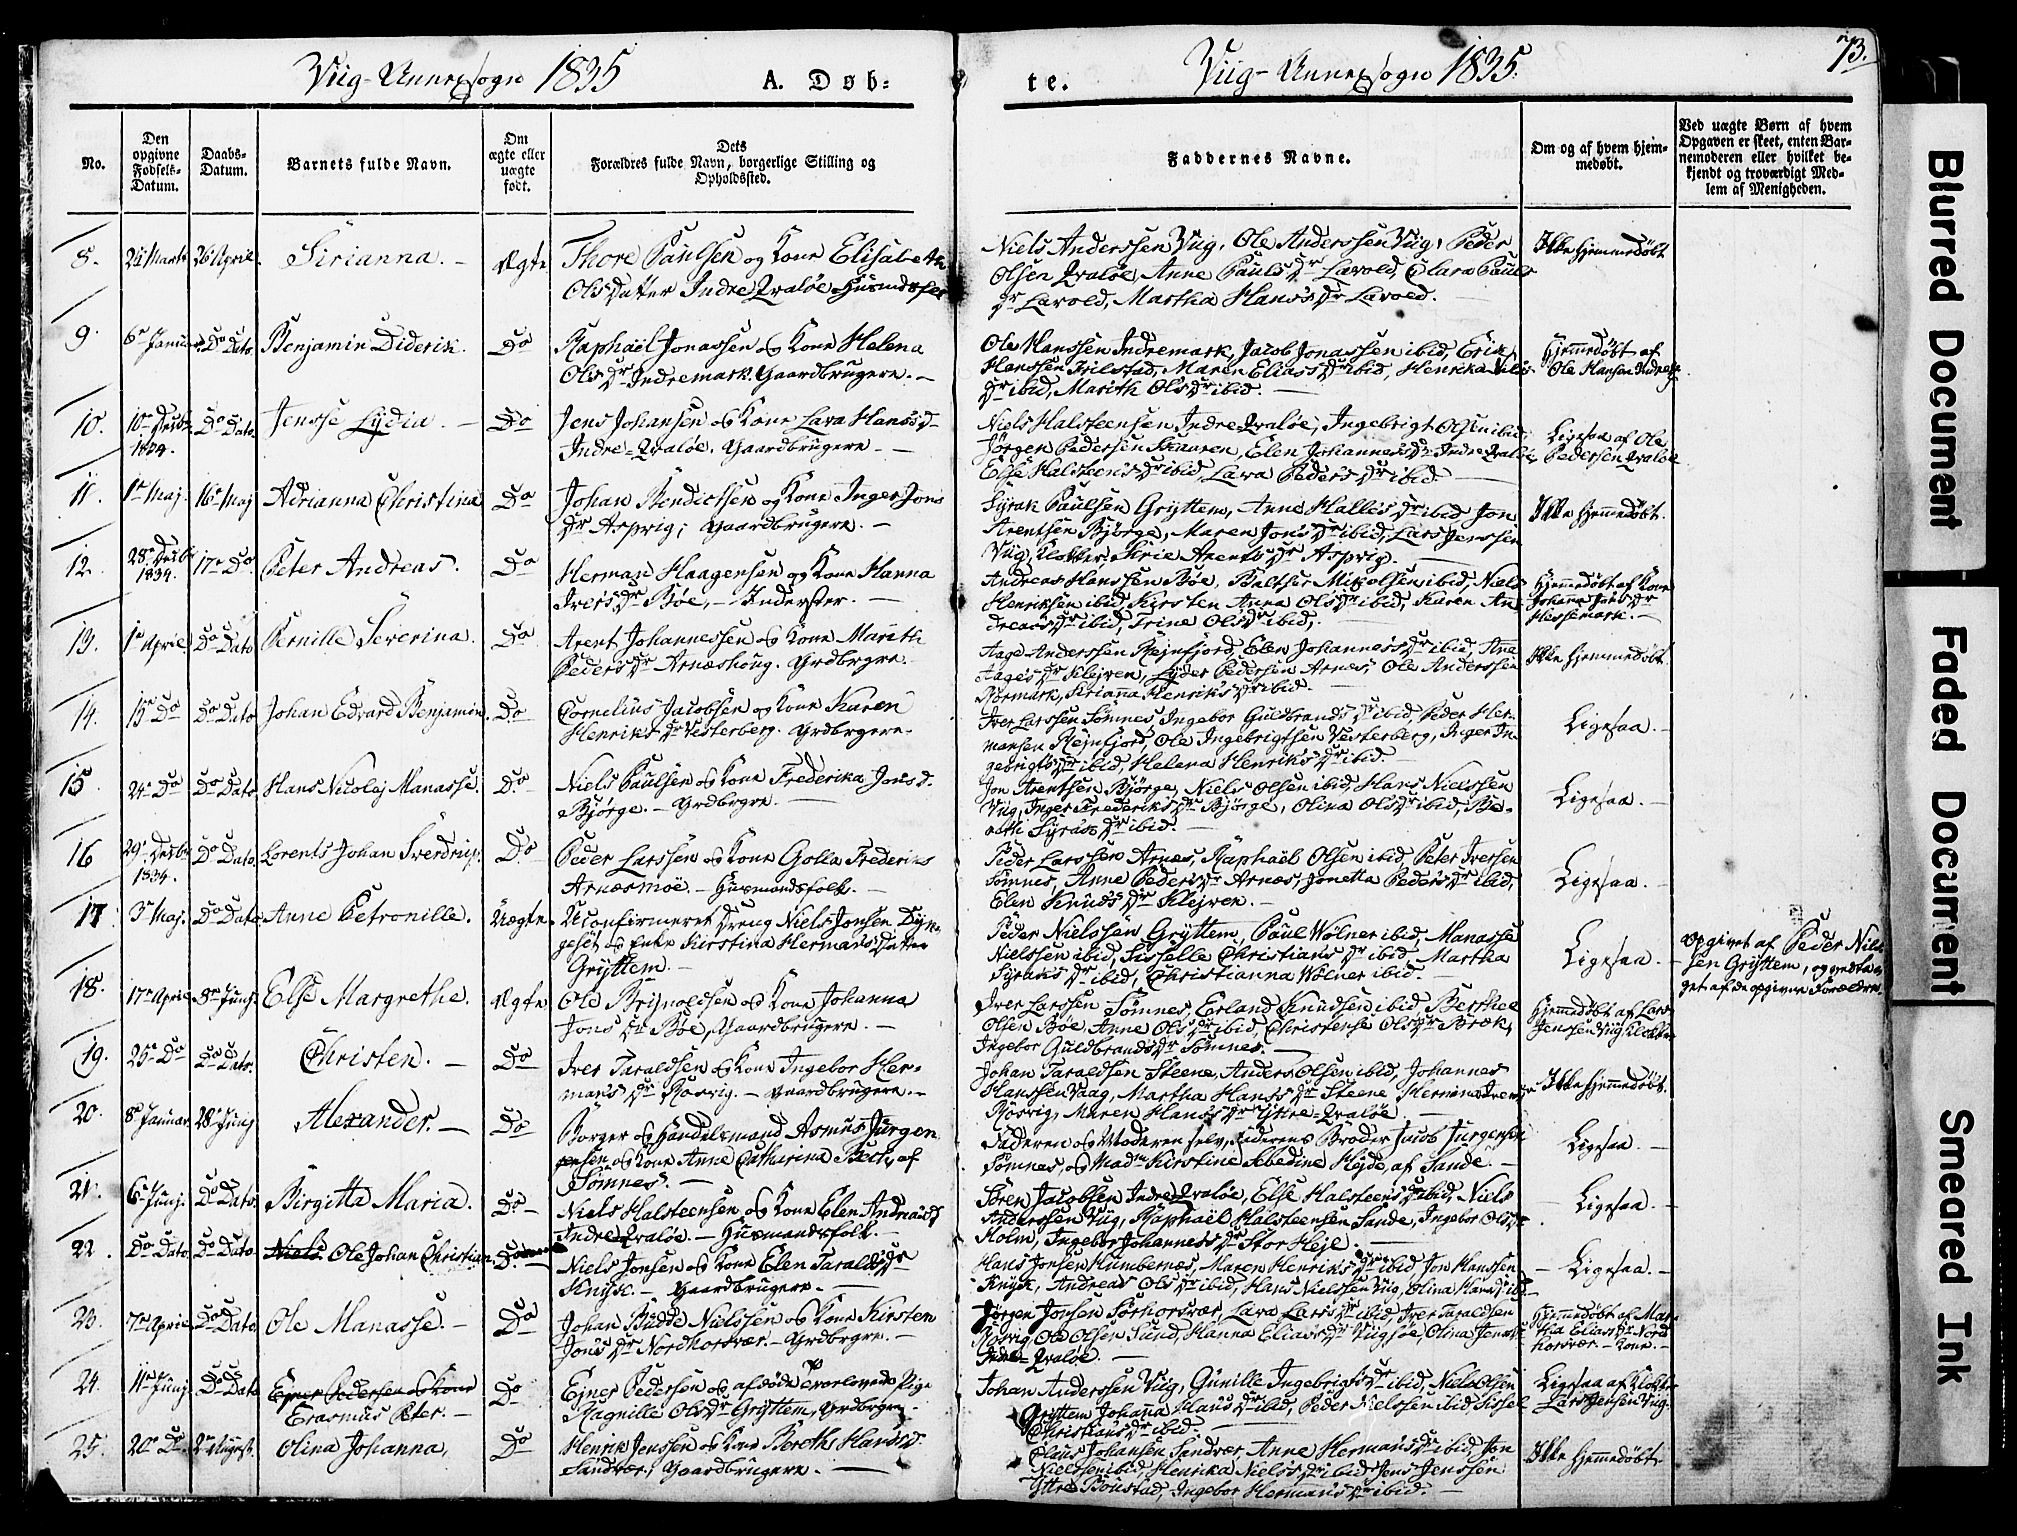 Viig-Annexsogn 1835
A. Døb-
te.
Viig-Annexsogn 1835.
73.
No.
Den opgivne Fødsels-Datum.
Daabs-Datum.
Barnets fulde Navn.
Om ægte eller uægte født.
Dets Forældres fulde Navn, borgerlige Stilling og Opholdssted.
Faddernes Navne.
Om og af hvem hjem-
medøbt.
Ved uægte Børn af hvem
Opgaven er skeet, enten Bar-
nemoderen eller hvilket be-
kjendt og troværdigt Med-
lem af Menigheden.
8. 26 Marts 26 April. Sirianna. – Ægte Thore Paulsen og Kone Elisabeth
Olsdatter Indre Qvaløe Huusmdsfolk
Niels Anderssen Viig, Ole Anderssen Viig, Peder
Olsen Qvaløe, Anne Pauls Dr Lavold, Clara Pauls
Dr Lavold, Martha Hans's Dr Lavold.
Ikke hjemmedøbt
9. 6te Januar Do Dato Benjamin Diderik. Do Raphaël Jonassen og Kone Helena
Ols Dr Indremark. Gaardbrugere. –
Ole Hanssen Indremark, Jacob Jonassen ibid, Erik
Hanssen Trilstad, Maren Elias's Dr ibid, Henrika Nils
Dr ibid, Marith Ols Dr ibid. –
Hjemmedøbt af
Ole Hansen Indre
10. 10de Decbr 1834. Do Dato. Jensse Lydia. – Do Jens Johansen og Kone Lava Hans's D.
Indre-Qvaløe. Gaardbrugere. –
Niels Halsteensen Indre Qvaløe, Ingebrigt Olsen ibid,
Jørgen Pedersen Skaaren, Elen Johannes's Dr Indre Qvaløe,
Else Halsteens Dr ibid, Lava Peders Dr ibid.
Ligesaa af Ole
Pedersen Qvaløe
11. 1ste Maj. 16de Maj Adrianna Christina Do Johan Bendichsen og Kone Inger Jons
Dr Aspvig; Gaardbrugere. –
Syrak Paulsen Gryttem, Anne Halles Dr ibid, Jon
Arentsen Bjørge, Maren Jons Dr ibid, Lars Jenssen
Viig, Klokker, Sirie Arents Dr Aspvig.
Ikke hjemmedøbt.
12. 28de Decbr 1834. 17de Do. Peter Andreas. Do Herman Haagensen og Kone Hanna
Ivers Dr Bøe, – Inderster. –
Andreas Hanssen Bøe, Balthser Mikelsen ibid, Niels
Henriksen ibid, Kirsten Anna Ols Dr ibid, Karen An-
dreas's Dr ibid, Trine Ols Dr ibid.
Hjemmedøbt af Kone
Johana Jons Dr
Hessemark. –
13. 1ste April Do Dato Pernille Severina. Do Arent Johannessen og Kone Marith
Peders Dr Arnæshoug. Grdbrgre.
Aage Anderssen Rejnfjord, Elen Johannes's Dr ibid, Ane
Aages Dr Klejven, Lyder Pedersen Arnes, Ole Anderssen
Normark, Sirianna Henriks Dr ibid. –
Ikke hjemmedøbt.
14. 15de Do Do Dato Johan Edvard Benjamin. Do Cornelius Jacobsen og Kone Karen
Henriks Dr Vesterberg. Grdbrgere.
Iver Larssen Sømnes, Ingebor Guldbrands Dr ibid, Peder Her-
mansen Rejnfjord, Ole Ingebrigtsen Vesterberg, Inger In-
gebrigts Dr ibid, Helena Henriks Dr ibid. –
Ligesaa. –
15. 24de Do Do Dato. Hans Nicolaj Manasse. Do Niels Paulsen og Kone Frederika Jons D.
Bjørge. – Grdbrgre. –
Jon Arentsen Bjørge, Niels Olsen ibid, Hans Nielssen
Viig, Inger Frederiks Dr Bjørge, Olina Ols Dr ibid, Be-
rethe Syraks Dr ibid. –
Ligesaa. –
16 29de Decbr 1834. Do Dato. Lorents Johan Sverdrup. Do Peder Larssen og Kone Golla Frederiks
Arnæsmoe. – Huusmandsfolk. –
Peder Larssen Arnes, Raphaël Olsen ibid, Peter Iversen
Sømnes, Anne Peders Dr Arnæs, Jonetta Peders Dr ibid,
Elen Knuds Dr Klejven. –
Ligesaa. –
17. 3de Maj. Do Dato Anne Petronille. Uægte. Uconfirmeret Dreng Niels Jonsen
og Enke Kirstina Hermans Datter
Gryttem. –
Peder Nielssen Gryttem, Paul Wolner ibid, Manasse
Nielssen ibid, Sisselle Christians Dr ibid, Martha
Syraks Dr ibid, Christianna Wolner ibid. –
Ligesaa. –
Opgivet af Peder Nils-
sen Gryttem, og vedta-
get af de opgivne Forældre.
18. 17de April 8de Junj. Else Margrethe. Ægte Ole Brijnoldsen og Kone Johanna
Jons Dr Bøe, Gaardbrugere. –
Iver Larssen Sømnes, Erland Knudsen ibid, Berthel
Olsen Bøe, Anne Ols Dr ibid, Christense Ols Dr Bræk,
Ingebor Guldbrands Dr Sømnes. –
Hjemmedøbt af Lars
Jenssen Viig Klokker
19. 25de Do Do Dato. Christen. – Do Iver Taraldsen og Kone Ingebor Her-
mans Dr Rosvig. – Gaardbrugere. –
Johan Taraldsen Steene, Anders Olsen ibid, Johannes
Hanssen Vaag, Martha Hans's Dr Steene, Hermina Ivers Dr
Rosvig, Maren Hans's Dr Yttre-Qvaløe. –
Ikke hjemmedøbt.
20. 8de Januar. 28de Junj Alexander. – Do Borger og Handelsmand Asmus Jürgen
jensen og Kone Anne Catharina Bech, af
Sømnes. –
Faderen og Moderen selv, Faderens Broder Jacob Jürgensen
Sømnes, og Madme Kirstine Sebedine Hejde, af Sande. –
Ligesaa. –
21. 6te Junj. Do Dato. Birgitta Maria. Do Niels Halsteensen og Kone Elen Andreas's D.
Indre Qvaløe. – Huusmandsfolk. –
Søren Jacobsen Indre Qvaløe, Else Halsteens Dr ibid, Niels
Anderssen Viig, Raphaël Halsteensen Sande, Ingebor Ols Dr
Holm, Ingebor Johannes's Dr Stor Heje. –
Ligesaa. –
22. Do Dato. Do Dato. Niels Ole Johan Christian. Do Niels Jonsen og Kone Elen Taralds Dr
Knijk. – Gaardbrugere. –
Hans Jonsen Humbernæs, Maren Henriks Dr ibid, Jon Hanssen
Knijk, Andreas Ols Dr ibid, Hans Nielssen Viig, Olina Hans's D. ibid
– Ligesaa. –
23. 7de April Do Dato Ole Manasse. – Do Johan Budde Nielssen og Kone Kirsten
Jons Dr Nordhorsvær. – Grdbrgre. –
Jørgen Jonsen Sørhorsvær, Lava Lars's Dr ibid, Iver Taraldsen
Rosvig, Ole Olsen Sund, Hanna Elias's Dr Viigsøe, Olina Jens's Dr
Indre-Qvaløe. –
Hjemmedøbt af Mar-
tha Elias's Dr Nord-
horsvær. – Kone. –
24. 11te Junj. Do Dato Ejner Pedersen og Kone
Erasmus Peter. – Do Ejner Pedersen og afdøde trolovede Pige
Ragnille Ols Dr Gryttem, Grdbrgre. –
Johan Anderssen Viig, Gunille Ingebrigts Dr ibid, Niels Olsen
Gryttem, Johanna Hans's Dr ibid, Peder Nielssen ibid, Sissel
Christians Dr ibid. –
Ligesaa af Klokker
Lars Jensen Viig.
25. 20de Do. 2den August. Olina Johanna, Do Henrik Jenssen og Kone Berethe Hans's D.
Sandvær, Gaardbrugere. –
Claus Johansen Sandvær, Anne Hermans Dr ibid, Jon
Nielssen ibid, Henrika Niels's Dr ibid, Jens Jenssen
Yttre Bønstad, Ingebor Hermans Dr ibid. –
Ikke hjemmedøbt.
Blurred Document
Faded Document
Smeared Ink